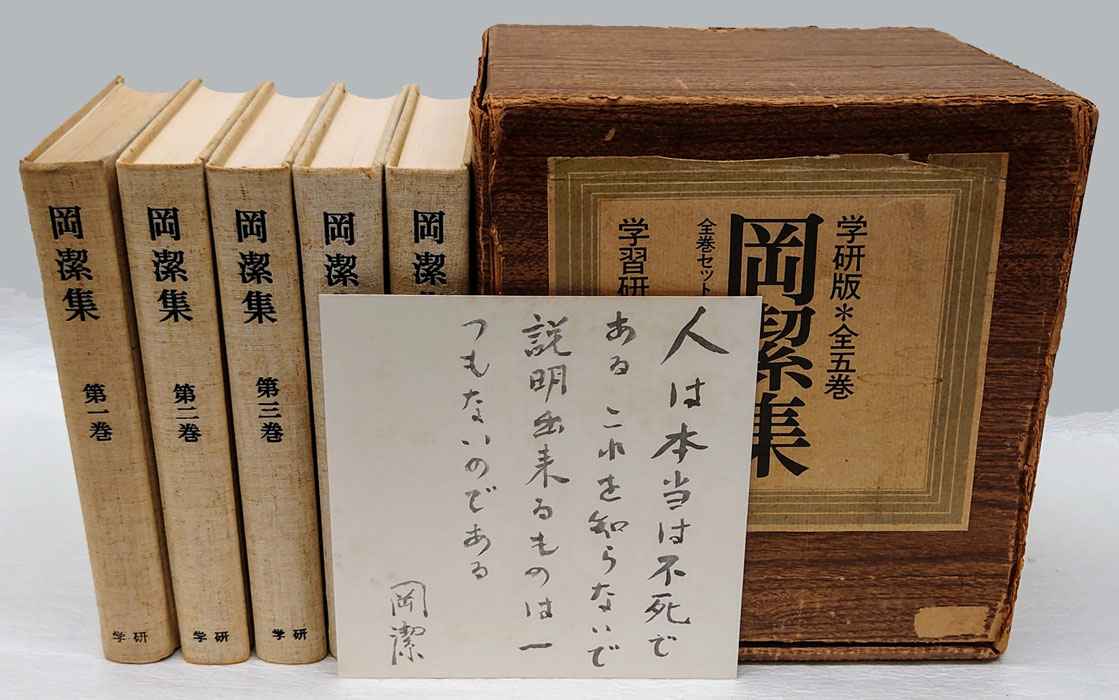 岡潔集
第一巻
学研
岡潔集
第二巻
学研
岡潔集
第三巻
学研
岡潔
岡潔
学研版＊全五巻
岡潔集
全巻セット
学習研
人は本当は不死で
ある これを知らないで
説明出来るものは一
つもないのである
岡潔